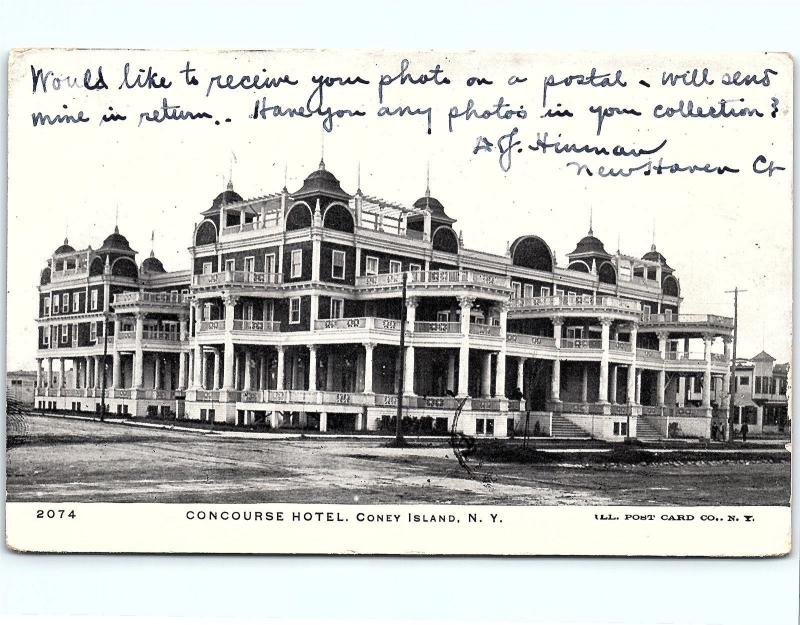 Would like to receive your photo on a postal - will send
mine in return.. Have you any photo's in your collection?
A J. Hinman
New Haven Ct
2074 CONCOURSE HOTEL. CONEY ISLAND, N. Y. ILL. POST CARD CO., N. Y.